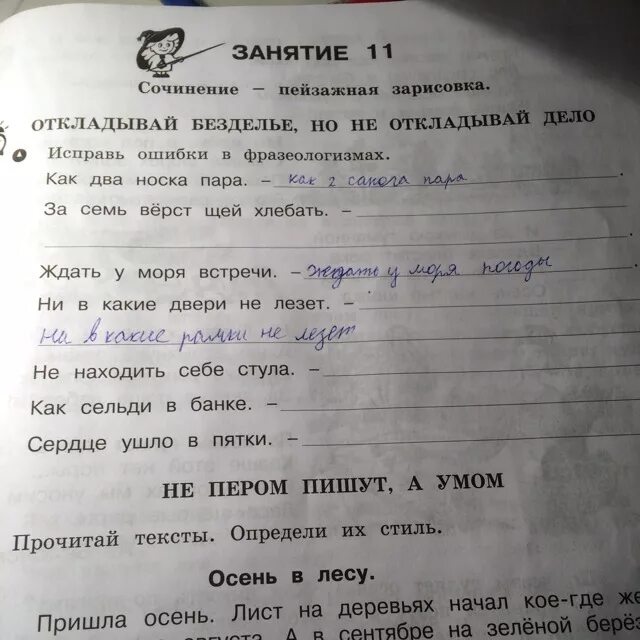 ЗАНЯТИЕ 11
Сочинение – пейзажная зарисовка.
ОТКЛАДЫВАЙ БЕЗДЕЛЬЕ, НО НЕ ОТКЛАДЫВАЙ ДЕЛО
Исправь ошибки в фразеологизмах.
Как два носка пара. – как 2 сапога пара.
За семь вёрст щей хлебать. –
Ждать у моря встречи. – Ждать у моря погоды
Ни в какие двери не лезет. –
Ни в какие рамки не лезет
Не находить себе стула. –
Как сельди в банке. –
Сердце ушло в пятки. –
НЕ ПЕРОМ ПИШУТ, А УМОМ
Прочитай тексты. Определи их стиль.
Осень в лесу.
Пришла осень. Лист на деревьях начал кое-где же
августа. А в сентябре на зелёной берёз